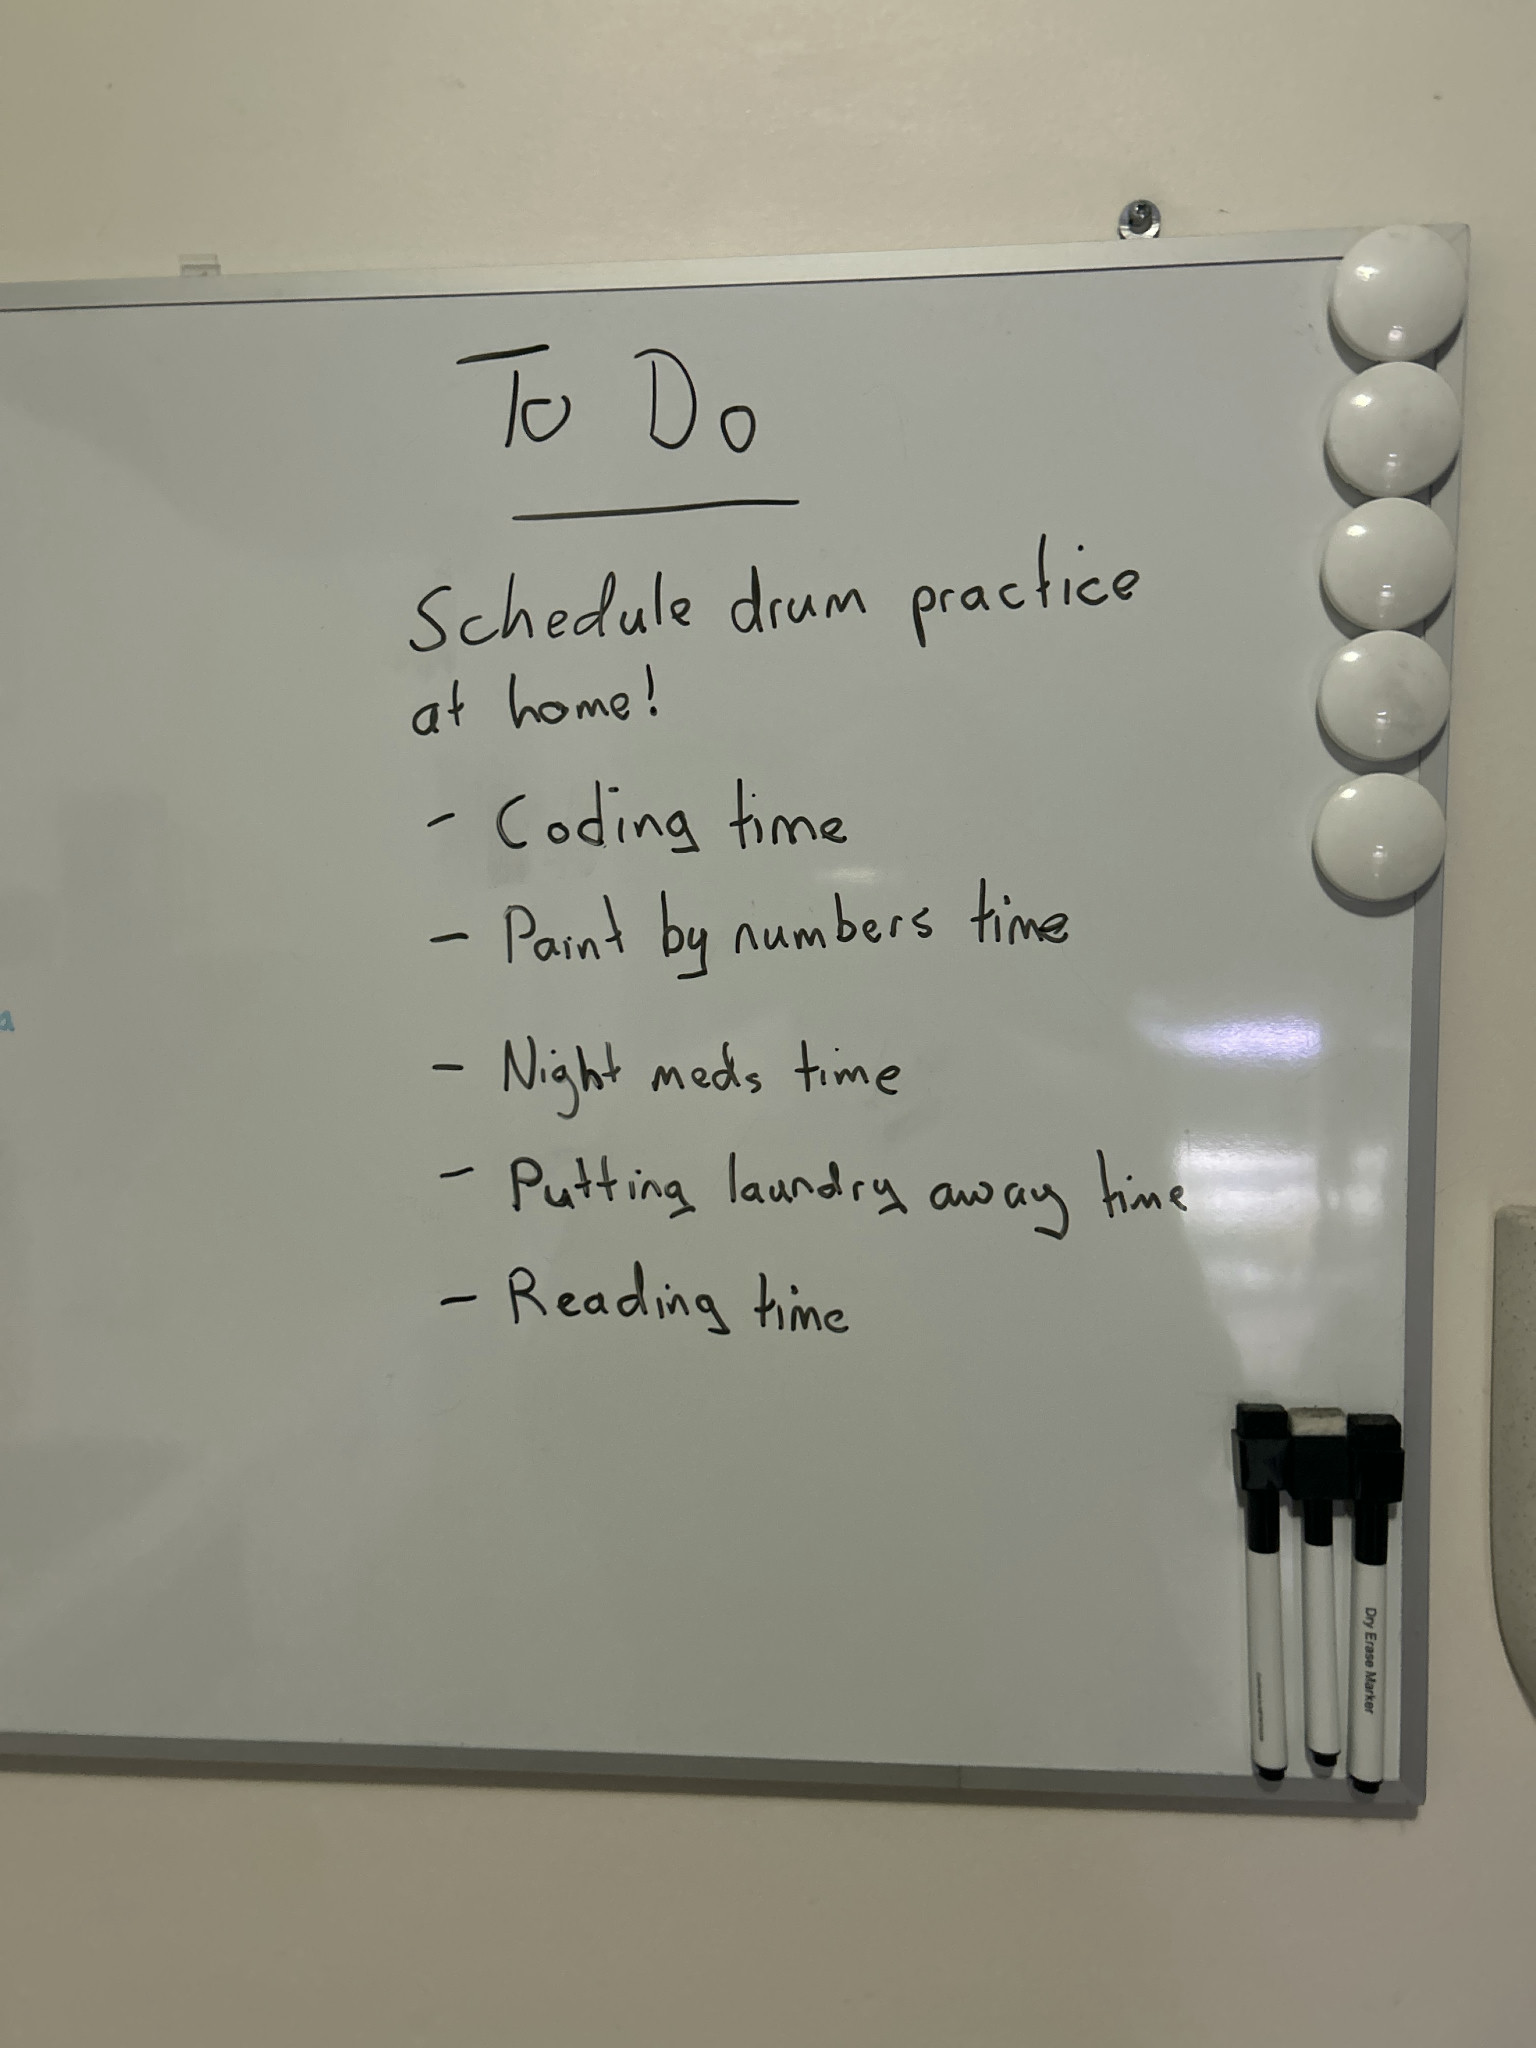 To Do
Schedule drum practice
at home!
- Coding time
- Paint by numbers time
- Night meds time
- Putting laundry away time
- Reading time
Dry Erase Marker